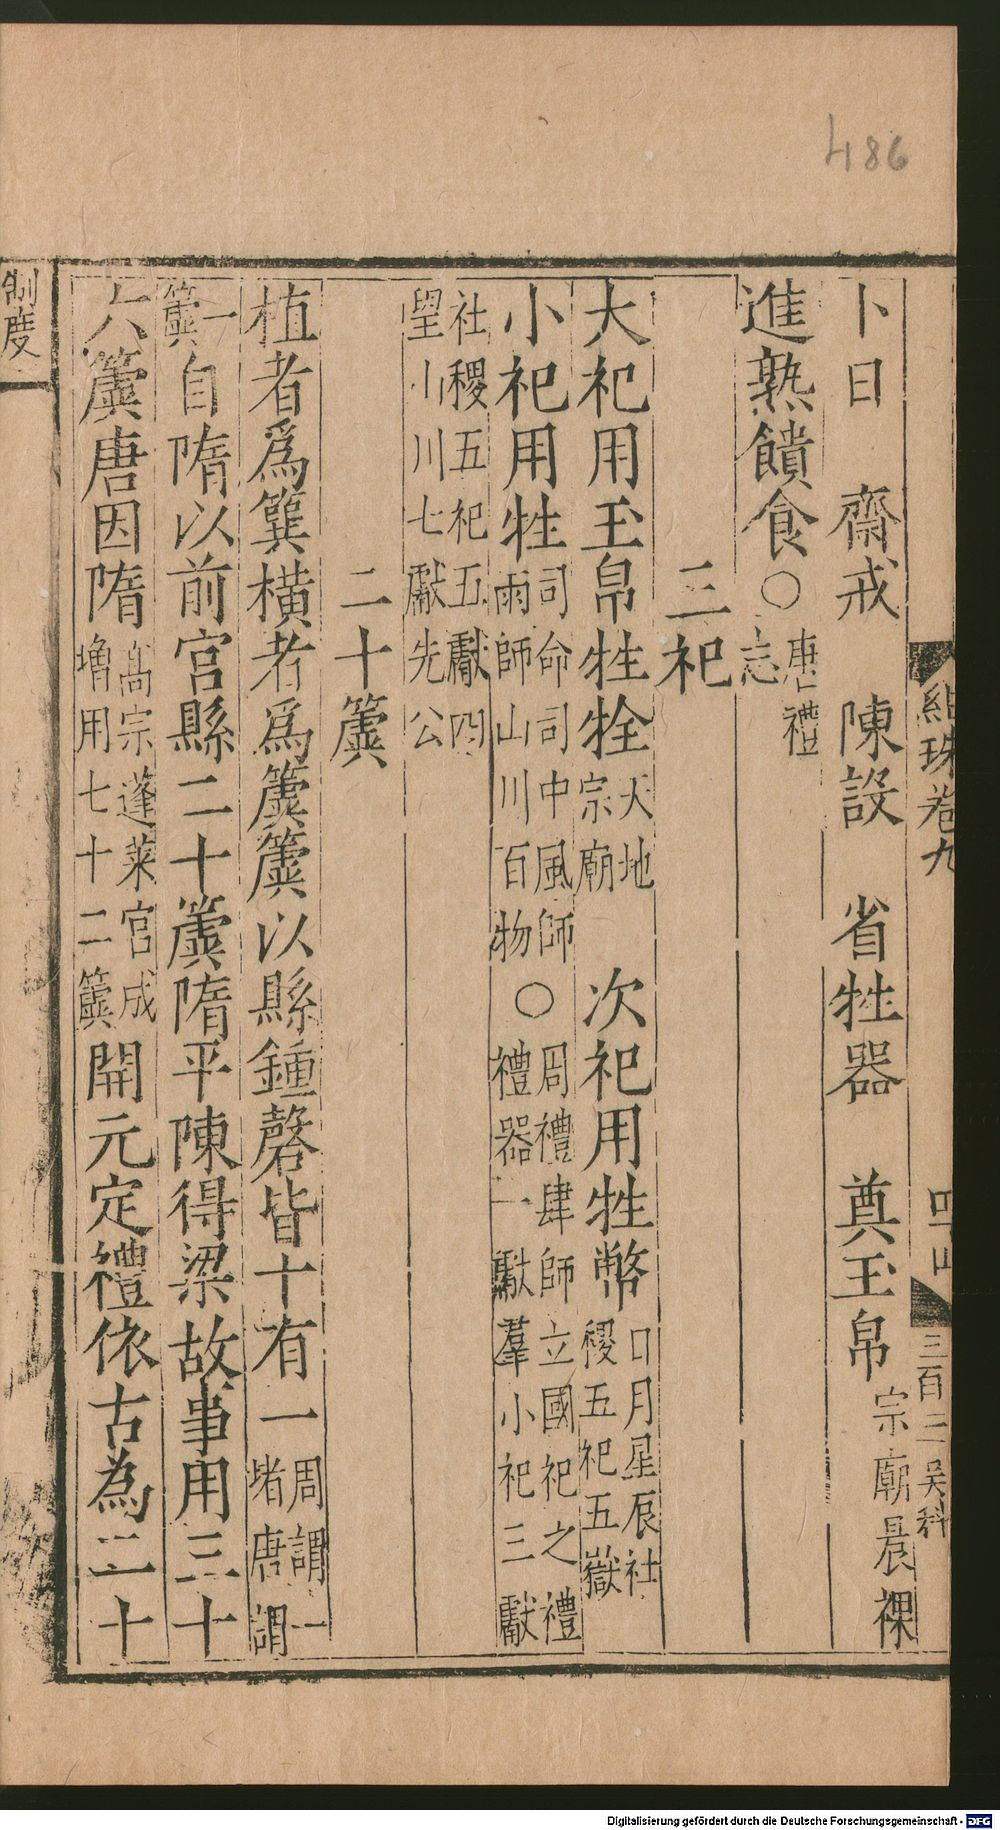 486
紺珠卷九
三百二 吴科
卜日 齋戒 陳設 省牲器 奠玉帛 宗廟晨祼
進熟饋食○唐禮志
三祀
大祀用玉帛牲牷 天地宗廟 次祀用牲幣 日月星辰社稷五祀五嶽
小祀用牲 司命司中風師雨師山川百物 ○ 周禮肆師立國祀之禮禮器一獻羣小祀三獻
社稷五祀五獻四望山川七獻先公
二十簴
植者爲簨橫者爲簴簴以縣鍾磬皆十有一 周謂一堵唐謂
一簴 自隋以前宮縣二十簴隋平陳得梁故事用三十
六簴唐因隋 高宗蓬萊宮成增用七十二簴 開元定禮依古為二十
制度
Digitalisierung gefördert durch die Deutsche Forschungsgemeinschaft - DFG